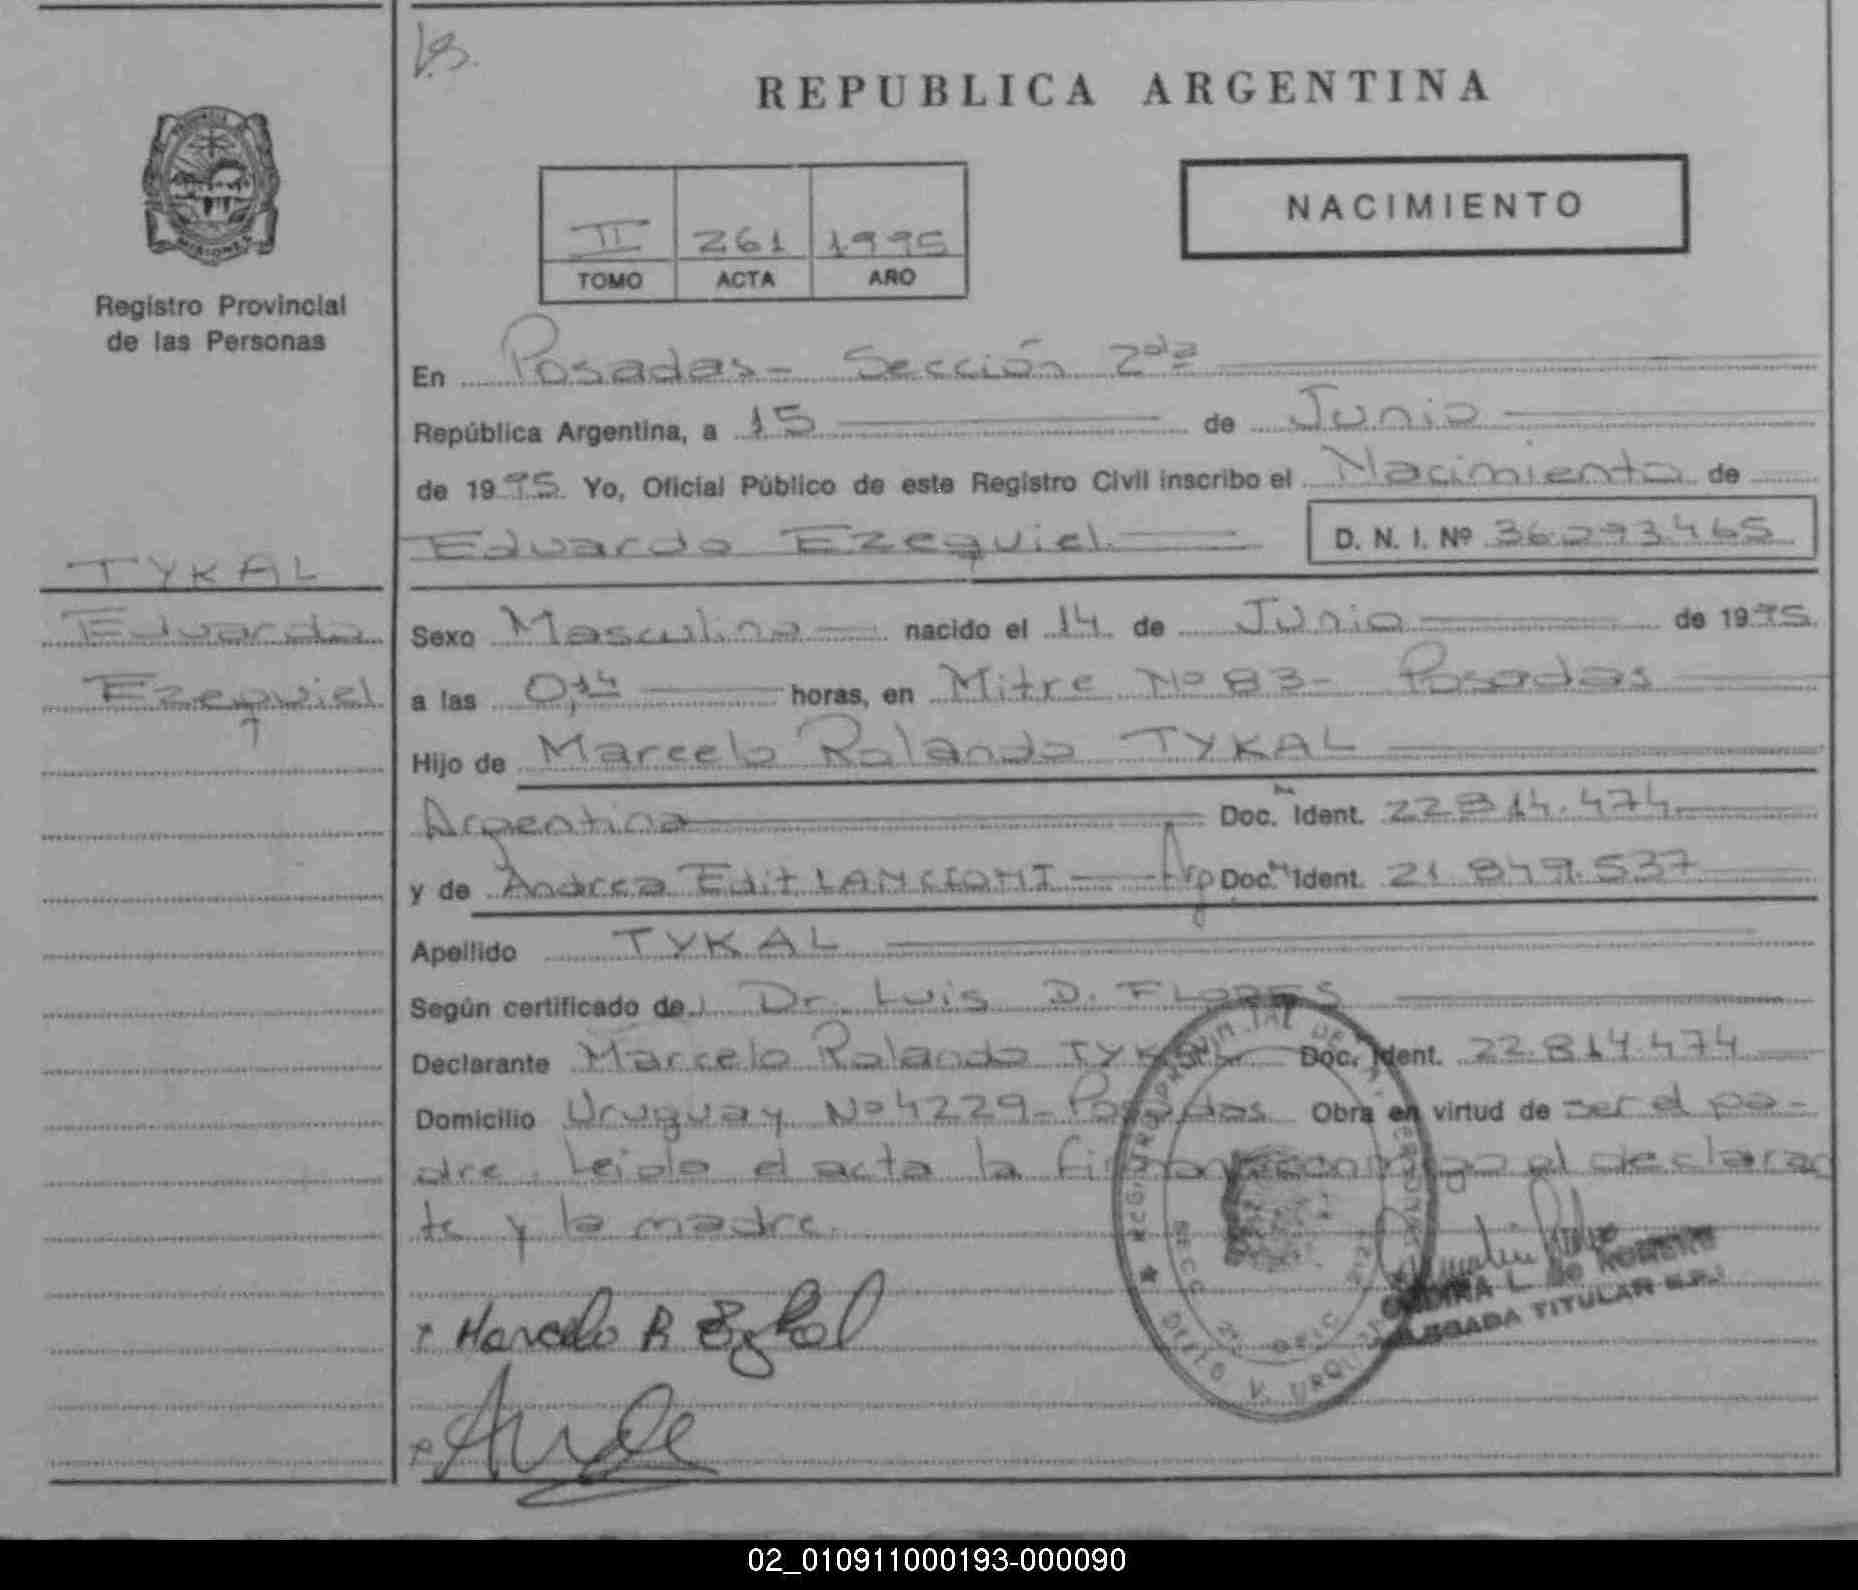 V.B.
REPUBLICA ARGENTINA
NACIMIENTO
II 261 1995
TOMO ACTA AÑO
MISIONES
Registro Provincial
de las Personas
TYKAL
Eduardo
Ezequiel
En Posadas - Sección 2da
República Argentina, a 15 de Junio
de 1995 Yo, Oficial Público de este Registro Civil inscribo el Nacimiento de
Eduardo Ezequiel D. N. I. Nº 36.293.465
Sexo Masculino nacido el 14 de Junio de 1995
a las 0,14 horas, en Mitre Nº 83 - Posadas
Hijo de Marcelo Rolando TYKAL
Argentina Doc. Ident. 22.814.474
y de Andrea Edit LANCIONI Arg Doc. Ident. 21.849.537
Apellido TYKAL
Según certificado de Dr. Luis D. FLORES
Declarante Marcelo Rolando TYKAL Doc. Ident. 22.814.474
Domicilio Uruguay Nº 4229 - Posadas Obra en virtud de ser el pa-
dre. Leida el acta la firman conmigo el declaran
te y la madre.
Marcelo R Tykal
TITULAR
02_010911000193-000090